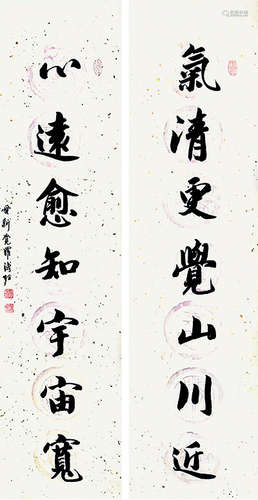 氣清更覺山川近
心遠愈知宇宙寬
愛新覺羅溥佐